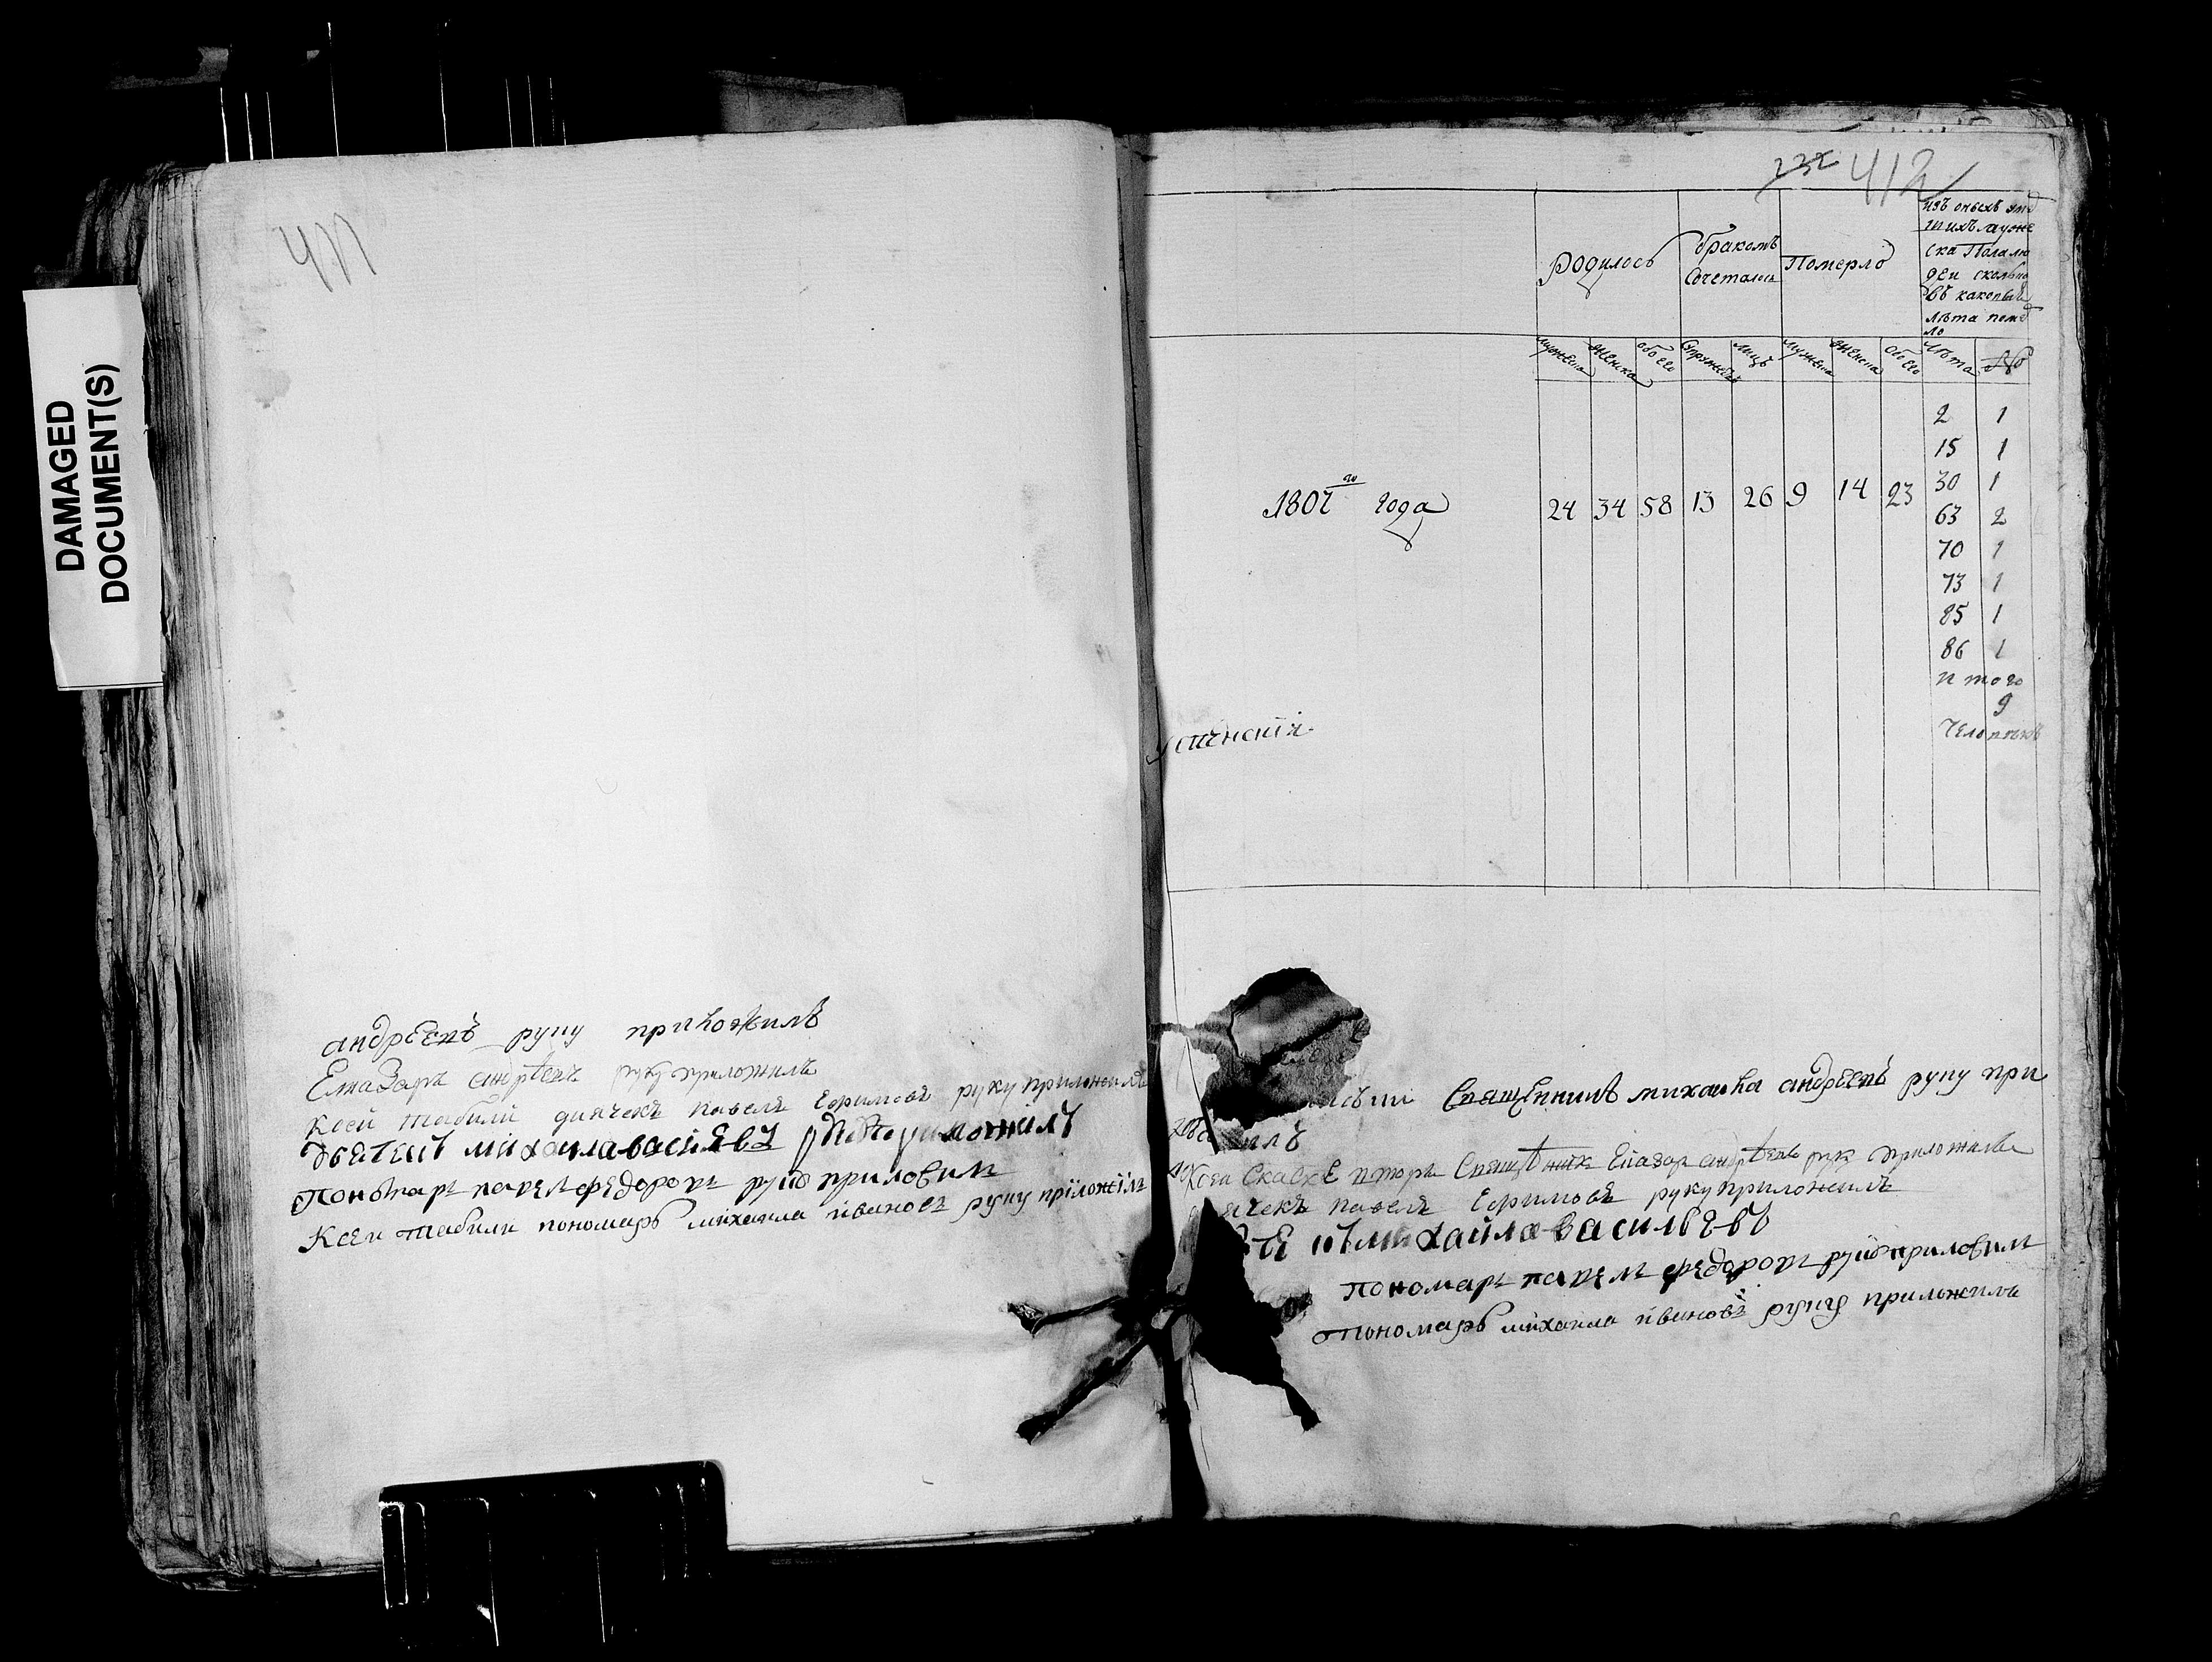 DAMAGED
DOCUMENT(S)
411
андреевъ руку приложилъ
Елеазаръ андрѣевъ руку приложилъ
Ксей табили дьячекъ павелъ Ефимовъ руку приложилъ
михаила василевъ
Пономарь павелъ федоровъ руку приложилъ
Ксеи табили пономарь михаила ивановъ руку приложилъ
232 412
Родилось
бракомъ
Сочеталось
Померло
изъ оныхъ умер
шихъ муже
ска Пола лю
деи сколько
въ какопыя
лѣта поме
ло
мужеска женска обоего Супружествъ лицъ мужеска женска обоего Лѣта №
1807 го года 24 34 58 13 26 9 14 23
2 1
15 1
30 1
63 2
70 1
73 1
85 1
86 1
итого
9
Человекъ
Священникъ михаила андреевъ руку при
Скаске Священникъ Елеазаръ андрѣевъ руку приложилъ
павелъ Ефимовъ руку приложилъ
михайла васильевъ
пономарь павелъ федоровъ руку приложилъ
пономарь михаила ивановъ руку приложилъ